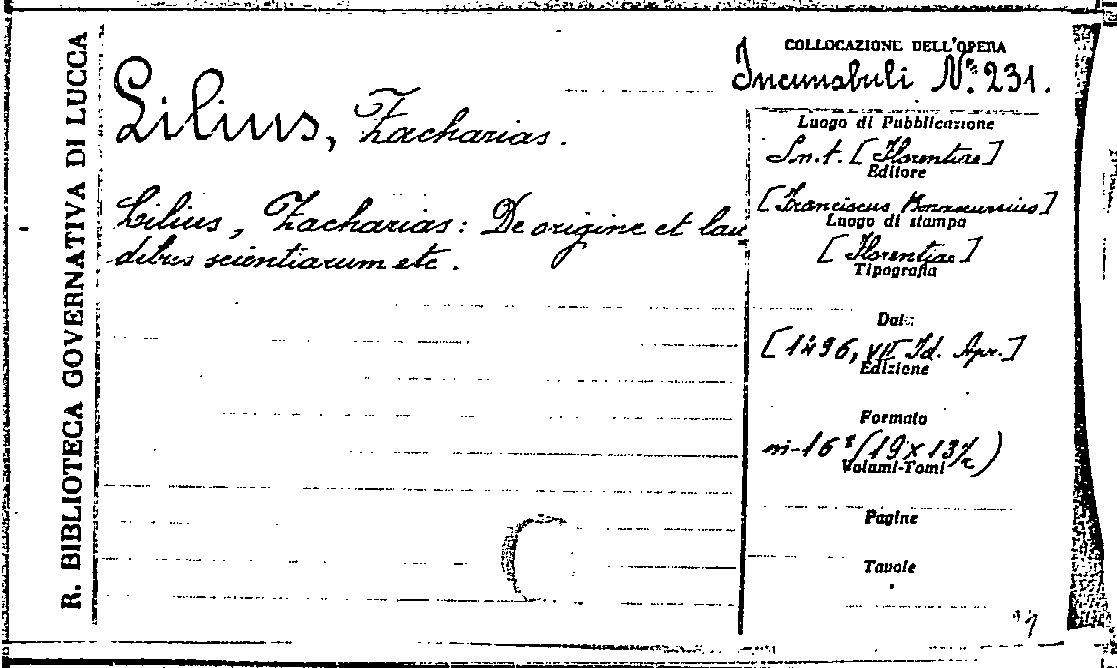 R. BIBLIOTECA GOVERNATIVA DI LUCCA
Lilius, Zacharias.
Lilius, Zacharias: De origine et lau
dibus scientiarum etc.
COLLOCAZIONE DELL'OPERA
Incunabuli Nº. 231.
Luogo di Pubblicazione
S.n.t. [Florentiae]
Editore
[Franciscus Bonaccursius]
Luogo di stampa
[Florentiae]
Tipografia
Data
[1496, VII Id. Apr.]
Edizione
Formato
in-16º (19 x 13½)
Volumi-Tomi
Pagine
Tavole